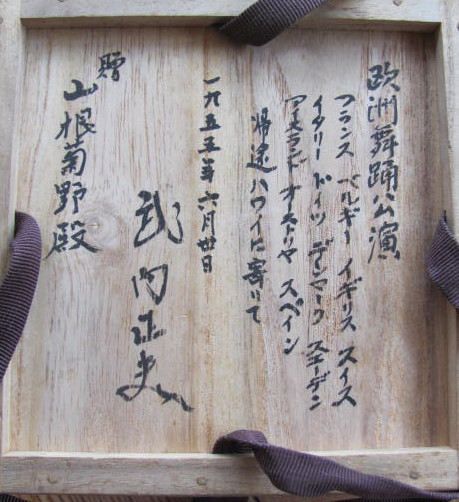 欧洲舞踊公演
フランス ベルギー イギリス スイス
イタリー ドイツ デンマーク スエーデン
アイスランド オーストリヤ スペイン
帰途ハワイに寄りて
一九五五年六月廿日
武内正夫
贈
山根菊野殿